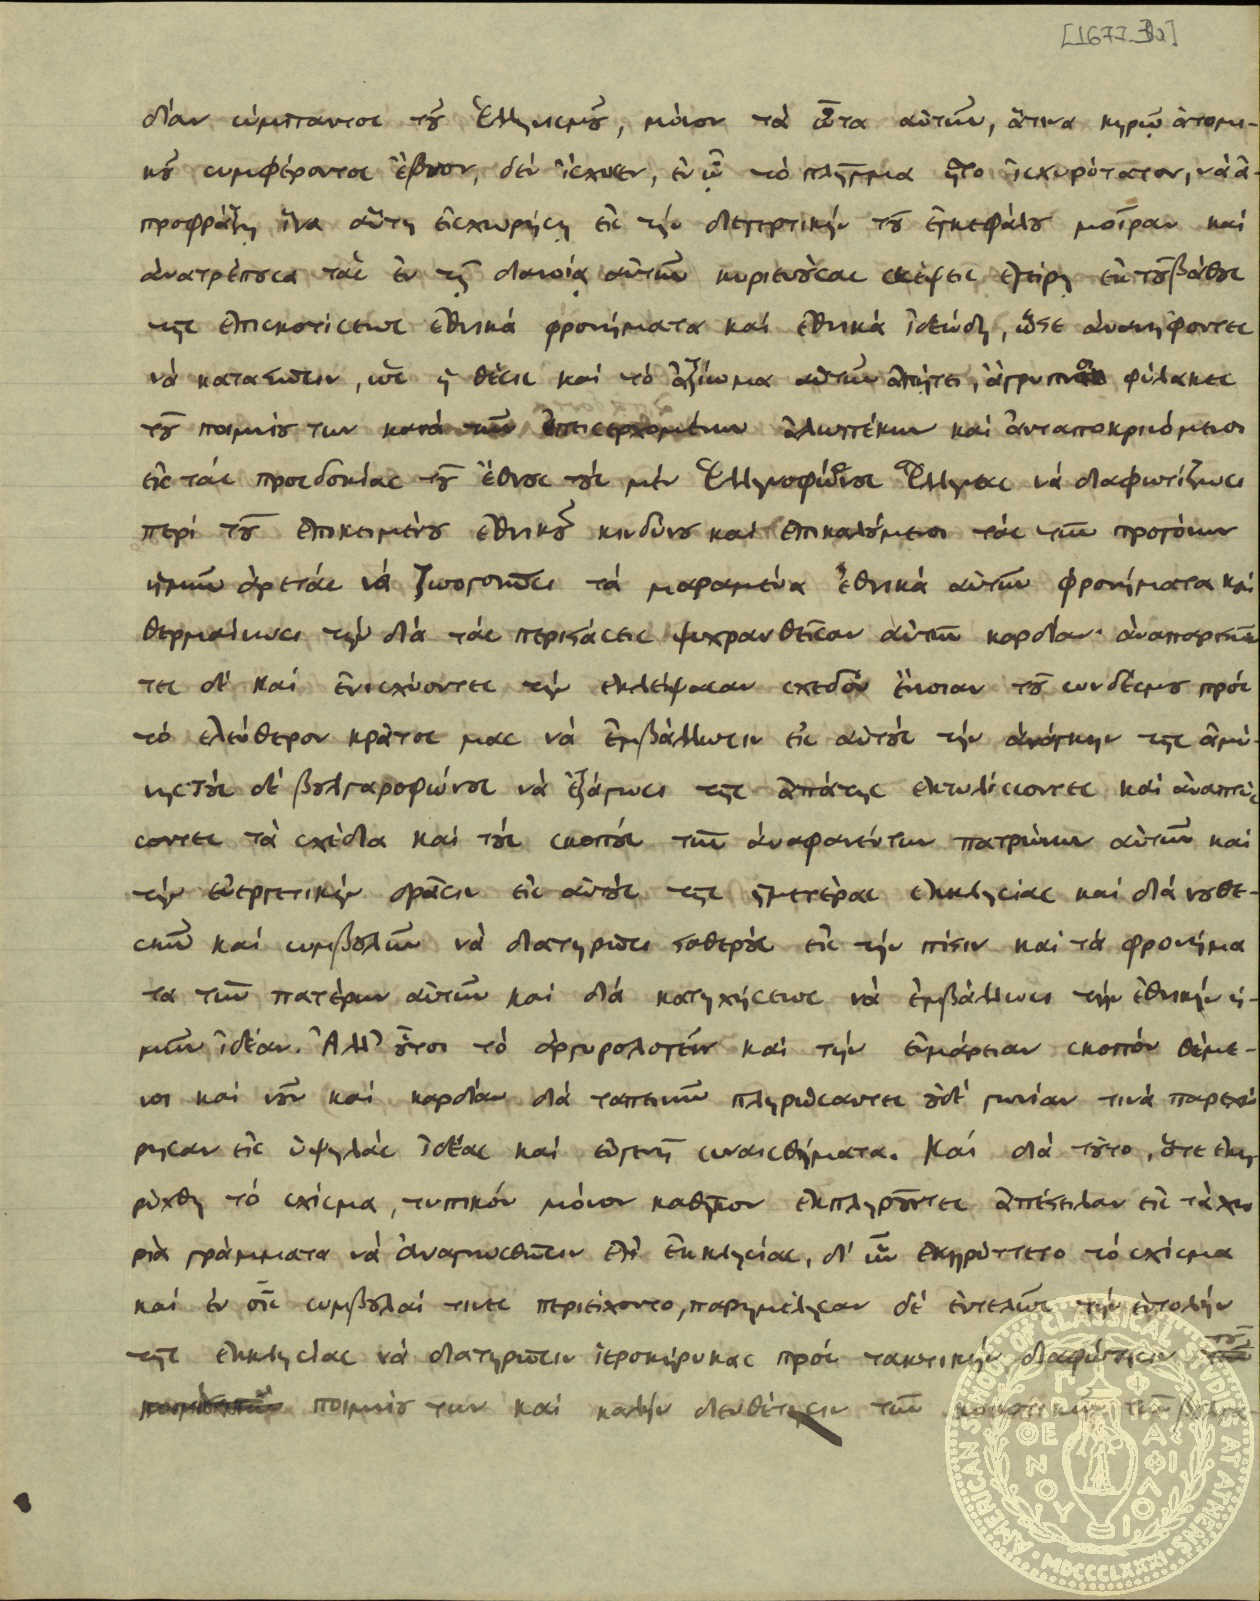 [1677_3α]
δίαν σύμπαντος τοῦ Ἑλληνισμοῦ, μόνον τὰ ὦτα αὐτῶν, ἅτινα κηρῷ ἀτομι-
κοῦ συμφέροντος ἔβυσον, δὲν ἴσχυσεν, ἐν ᾧ τὸ πλῆγμα ἦτο ἰσχυρότατον, νὰ ἀ-
προφράξῃ ἵνα αὕτη εἰσχωρήσῃ εἰς τὴν διεγερτικὴν τοῦ ἐγκεφάλου μοῖραν καὶ
ἀνατρέπουσα τὰς ἐν τῇ διανοίᾳ αὐτῶν κυριευούσας σκέψεις ἐγείρῃ ἐκ τοῦ βάθους
τῆς ἐπισκοτίσεως ἐθνικὰ φρονήματα καὶ ἐθνικὰ ἰδεώδη, ὥστε ἀνανήφοντες
νὰ καταστῶσιν, ὡς ἡ θέσις καὶ τὸ ἀξίωμα αὐτῶν ἀπῄτει, ἄγρυπνοι φύλακες
τοῦ ποιμνίου των κατὰ τῶν ἐπεισερχομένων ἀλωπέκων καὶ ἀνταποκρινόμενοι
εἰς τὰς προσδοκίας τοῦ ἔθνους τοὺς μὲν Ἑλληνοφώνους Ἕλληνας νὰ διαφωτίζωσι
περὶ τοῦ ἐπικειμένου ἐθνικοῦ κινδύνου καὶ ἐπικαλούμενοι τὰς τῶν προγόνων
ἡμῶν ἀρετὰς νὰ ζωογονῶσι τὰ μαραμένα ἐθνικὰ αὐτῶν φρονήματα καὶ
θερμαίνωσι τὴν διὰ τὰς περιστάσεις ψυχρανθεῖσαν αὐτῶν καρδίαν· ἀναπορισοῦν
τες δὲ καὶ ἐνισχύοντες τὴν ἐκλείψασαν σχεδὸν ἔννοιαν τοῦ συνδέσμου πρὸς
τὸ ἐλεύθερον κράτος μας νὰ ἐμβάλλωσιν εἰς αὐτοὺς τὴν ἀνάγκην τῆς ἀμύ-
νης τοὺς δὲ βουλγαροφώνους νὰ ἐξάγωσι τῆς ἀπάτης ἐκτυλίσσοντες καὶ ἀναπτύσ
σοντες τὰ σχέδια καὶ τοὺς σκοποὺς τῶν ἀναφανέντων πατρώνων αὐτῶν καὶ
τὴν εὐεργετικὴν δρᾶσιν εἰς αὐτοὺς τῆς ἡμετέρας ἐκκλησίας καὶ διὰ νουθε-
σιῶν καὶ συμβουλῶν νὰ διατηρῶσι σταθεροὺς εἰς τὴν πίστιν καὶ τὰ φρονήμα
τα τῶν πατέρων αὐτῶν καὶ διὰ κατηχήσεως νὰ ἐμβάλλωσι τὴν ἐθνικὴν ἡ-
μῶν ἰδέαν. Ἀλλ' οὗτοι τὸ ἀργυρολογεῖν καὶ τὴν εὐμάρειαν σκοπὸν θέμε-
νοι καὶ νοῦν καὶ καρδίαν διὰ ταπεινῶν πληρώσαντες οὐδὲ γωνίαν τινὰ παρεχώ
ρησαν εἰς ὑψηλὰς ἰδέας καὶ εὐγενῆ συναισθήματα. Καὶ διὰ τοῦτο, ὅτε ἐκη
ρύχθη τὸ σχίσμα, τυπικὸν μόνον καθῆκον ἐκπληροῦντες ἀπέστειλαν εἰς τὰ χω
ριὰ γράμματα νὰ ἀναγνωσθῶσιν ἐπ' ἐκκλησίας, δι' ὧν ἐκηρύττετο τὸ σχίσμα
καὶ ἐν οἷς συμβουλαί τινες περιείχοντο, παρημέλησαν δὲ ἐντελῶς τὴν ἐντολὴν
τῆς ἐκκλησίας νὰ διατηρῶσιν ἱεροκήρυκας πρὸς τακτικὴν διαφώτισιν τοῦ
ποιμνίου των καὶ καλὴν διευθέτησιν τῶν
AMERICAN SCHOOL OF CLASSICAL STUDIES AT ATHENS
MDCCCLXXXI
ΠΑΡΘΕΝΟΥ ΦΙΛΟΥ